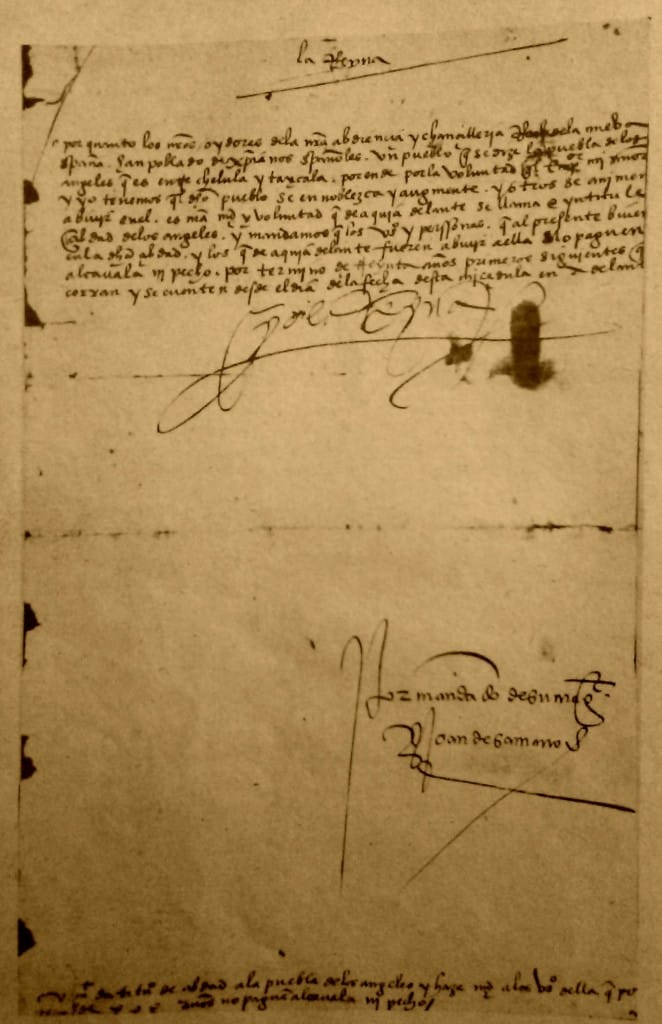 la Reyna
por quanto los nros oydores dela nra abdiencia y chancilleria Real dela nueba
España han poblado de xpianos Españoles. Un pueblo q se dize la puebla de los
angeles q es entre cholula y taxcala. porende por la voluntad q el mi señor
y yo tenemos q dho pueblo se ennoblezca y augmente. y otros se animen
a biuir enel. es mi md y voluntad q de aqui adelante se llame e yntitule
cibdad delos angeles. y mandamos q los vos y perssonas. que al presente biuen
en la dha cibdad. y los q de aqui adelante fueren a biuir a ella no paguen
alcauala ni pecho. por termino de treynta años primeros siguientes q
corran y se cuenten desde el dia dela fecha desta mi cedula en adelante
yo la Reyna
Por mandado de su mag
Joan de Samano
titu de cibdad ala puebla de los angeles y haze md alos vos della q por
años no paguen alcauala ni pechos